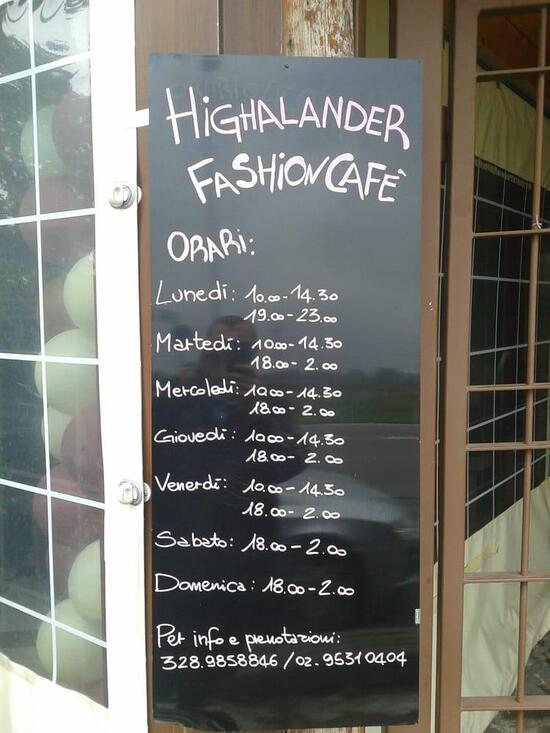 HIGHALANDER
FASHION CAFÈ
ORARI:
Lunedì: 10.00-14.30
19.00-23.00
Martedì: 10.00-14.30
18.00-2.00
Mercoledì: 10.00-14.30
18.00-2.00
Giovedì: 10.00-14.30
18.00-2.00
Venerdì: 10.00-14.30
18.00-2.00
Sabato: 18.00-2.00
Domenica: 18.00-2.00
Per info e prenotazioni:
328.9858846/02.95310404